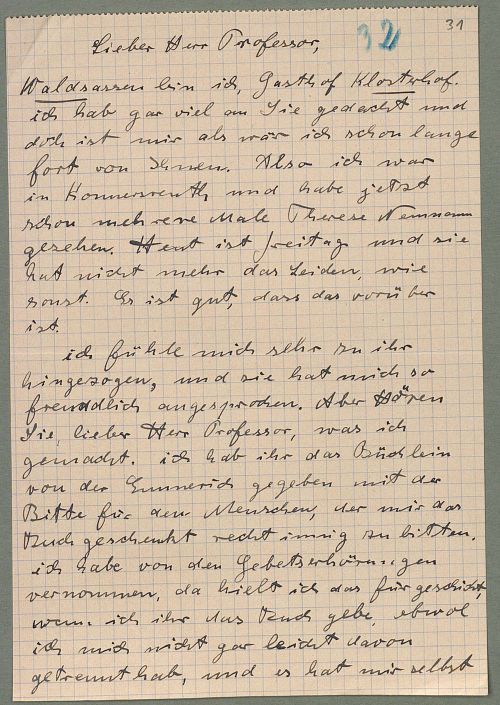 32
31
Lieber Herr Professor,
Waldsassen bin ich, Gasthof Klosterhof.
ich hab gar viel an Sie gedacht und
doch ist mir als wär ich schon lange
fort von Ihnen. Also ich war
in Konnersreuth und habe jetzt
schon mehrere Male Therese Neumann
gesehen. Heut ist Freitag und sie
hat nicht mehr das Leiden, wie
sonst. Es ist gut, dass das vorüber
ist.
ich fühle mich sehr zu ihr
hingezogen, und sie hat mich so
freundlich angesprochen. Aber Hören
Sie, lieber Herr Professor, was ich
gemacht. ich hab ihr das Büchlein
von der Emmerich gegeben mit der
Bitte für den Menschen, der mir das
Buch geschenkt recht innig zu bitten.
ich habe von den Gebetserhörungen
vernommen, da hielt ich das für geschickt,
wenn ich ihr das Buch gebe, obwol
ich mich nicht gar leicht davon
getrennt hab, und es hat mir selbst